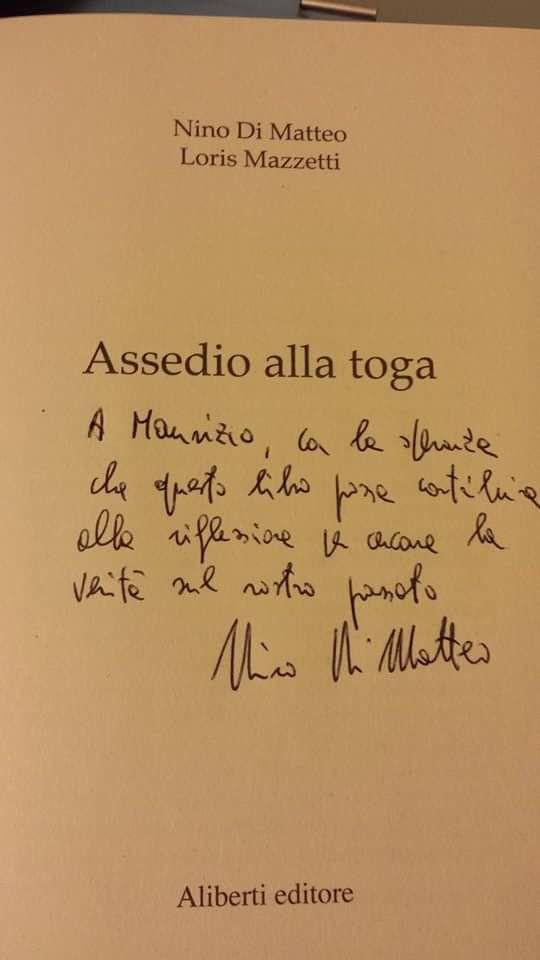 Nino Di Matteo
Loris Mazzetti
Assedio alla toga
A Maurizio, con la speranza
che questo libro possa contribuire
alla riflessione per cercare la
verità sul nostro passato
Nino Di Matteo
Aliberti editore